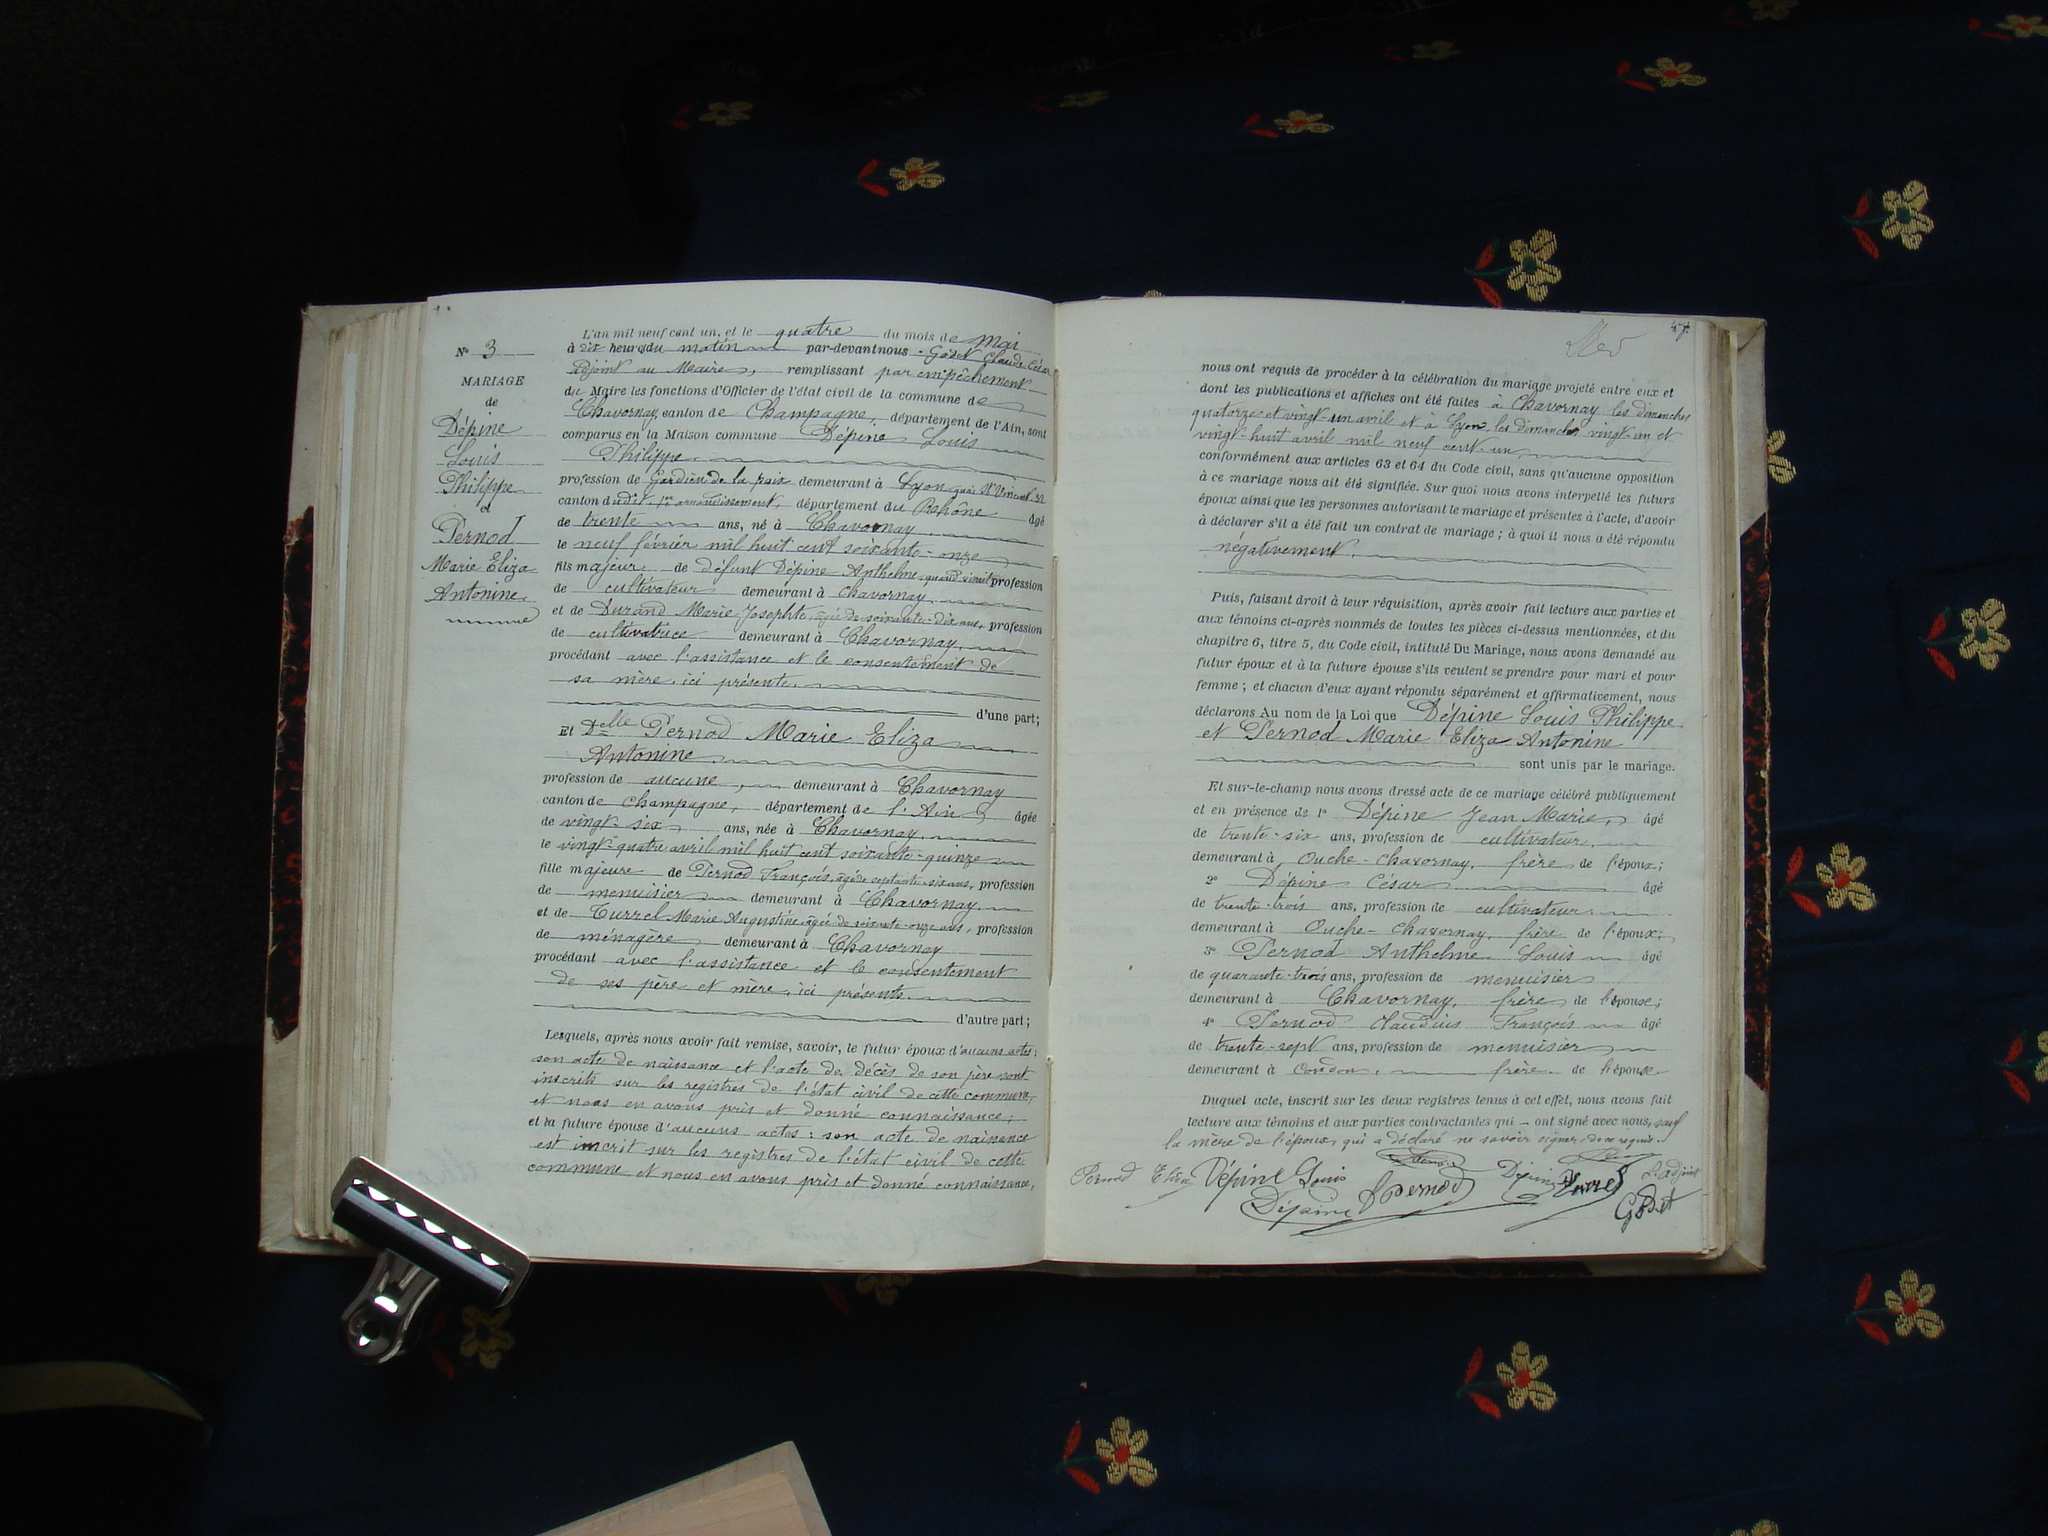 N° 3
MARIAGE
de
Dépine
Louis
Philippe
et
Pernod
Marie Eliza
Antonine
L'an mil neuf cent un, et le quatre du mois de Mai
à dix heures du matin par-devant nous Godet Claude César
adjoint au Maire, remplissant par empêchement
du Maire les fonctions d'Officier de l'état civil de la commune de
Chavornay, canton de Champagne, département de l'Ain, sont
comparus en la Maison commune Dépine Louis
Philippe
profession de Gardien de la paix demeurant à Lyon quai St Vincent 32
canton dudit, 1er arrondissement, département du Rhône âgé
de trente ans, né à Chavornay
le neuf février mil huit cent soixante-onze
fils majeur de défunt Dépine Anthelme, quand vivait profession
de cultivateur demeurant à Chavornay
et de Durand Marie Josephte, âgée de soixante-dix ans, profession
de cultivatrice demeurant à Chavornay
procédant avec l'assistance et le consentement de
sa mère, ici présente.
d'une part;
Et Delle Pernod Marie Eliza
Antonine
profession de aucune, demeurant à Chavornay
canton de Champagne, département de l'Ain âgée
de vingt-six ans, née à Chavornay
le vingt-quatre avril mil huit cent soixante-quinze
fille majeure de Pernod François, âgé de septante-six ans, profession
de menuisier demeurant à Chavornay
et de Turrel Marie Augustine âgée de soixante-onze ans, profession
de ménagère demeurant à Chavornay
procédant avec l'assistance et le consentement
de ses père et mère, ici présents.
d'autre part;
Lesquels, après nous avoir fait remise, savoir, le futur époux d'aucuns actes:
son acte de naissance et l'acte de décès de son père sont
inscrits sur les registres de l'état civil de cette commune,
et nous en avons pris et donné connaissance,
et la future épouse d'aucuns actes: son acte de naissance
est inscrit sur les registres de l'état civil de cette
commune et nous en avons pris et donné connaissance,
47
nous ont requis de procéder à la célébration du mariage projeté entre eux et
dont les publications et affiches ont été faites à Chavornay les dimanches
quatorze et vingt-un avril et à Lyon, les dimanches vingt-un et
vingt-huit avril mil neuf cent un
conformément aux articles 63 et 64 du Code civil, sans qu'aucune opposition
à ce mariage nous ait été signifiée. Sur quoi nous avons interpellé les futurs
époux ainsi que les personnes autorisant le mariage et présentes à l'acte, d'avoir
à déclarer s'il a été fait un contrat de mariage; à quoi il nous a été répondu
négativement.
Puis, faisant droit à leur réquisition, après avoir fait lecture aux parties et
aux témoins ci-après nommés de toutes les pièces ci-dessus mentionnées, et du
chapitre 6, titre 5, du Code civil, intitulé Du Mariage, nous avons demandé au
futur époux et à la future épouse s'ils veulent se prendre pour mari et pour
femme; et chacun d'eux ayant répondu séparément et affirmativement, nous
déclarons Au nom de la Loi que Dépine Louis Philippe
et Pernod Marie Eliza Antonine
sont unis par le mariage.
Et sur-le-champ nous avons dressé acte de ce mariage célébré publiquement
et en présence de 1° Dépine Jean Marie, âgé
de trente-six ans, profession de cultivateur
demeurant à Ouche-Chavornay, frère de l'époux;
2° Dépine César âgé
de trente-trois ans, profession de cultivateur
demeurant à Ouche-Chavornay, frère de l'époux;
3° Pernod Anthelme Louis âgé
de quarante-trois ans, profession de menuisier
demeurant à Chavornay, frère de l'épouse;
4° Pernod Claudius François âgé
de trente-sept ans, profession de menuisier
demeurant à Condon, frère de l'épouse
Duquel acte, inscrit sur les deux registres tenus à cet effet, nous avons fait
lecture aux témoins et aux parties contractantes qui ont signé avec nous, sauf
la mère de l'époux, qui a déclaré ne savoir signer de ce requise.
Pernod Eliza Dépine Louis Dépine L'adjoint
Dépine Pernod Godet